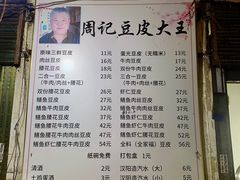 周记豆皮大王
原味三鲜豆皮 11元
肉丝豆皮 16元
腰花豆皮 16元
二合一豆皮 22元
(牛肉/肉丝+腰花)
双份腰花豆皮 32元
鳝鱼豆皮 27元
鳝鱼肉丝豆皮 32元
鳝鱼腰花豆皮 32元
鳝鱼腰花牛肉豆皮 43元
鳝鱼虾仁牛肉豆皮 43元
鳝鱼虾仁腰花牛肉豆皮 54元
蛋光豆皮(无糯米) 13元
牛肉豆皮 17元
双份牛肉豆皮 23元
三合一豆皮 25元
(牛肉+肉丝+腰花)
虾仁豆皮 22元
鳝鱼牛肉豆皮 32元
鳝鱼虾仁豆皮 38元
鳝鱼虾仁腰花豆皮 43元
全料(全家福)豆皮 56元
纸碗免费 打包盒 1元
清酒 2元
土鸡蛋酒 3元
汉阳造汽水(大) 5元
汉阳造汽水(小) 5元